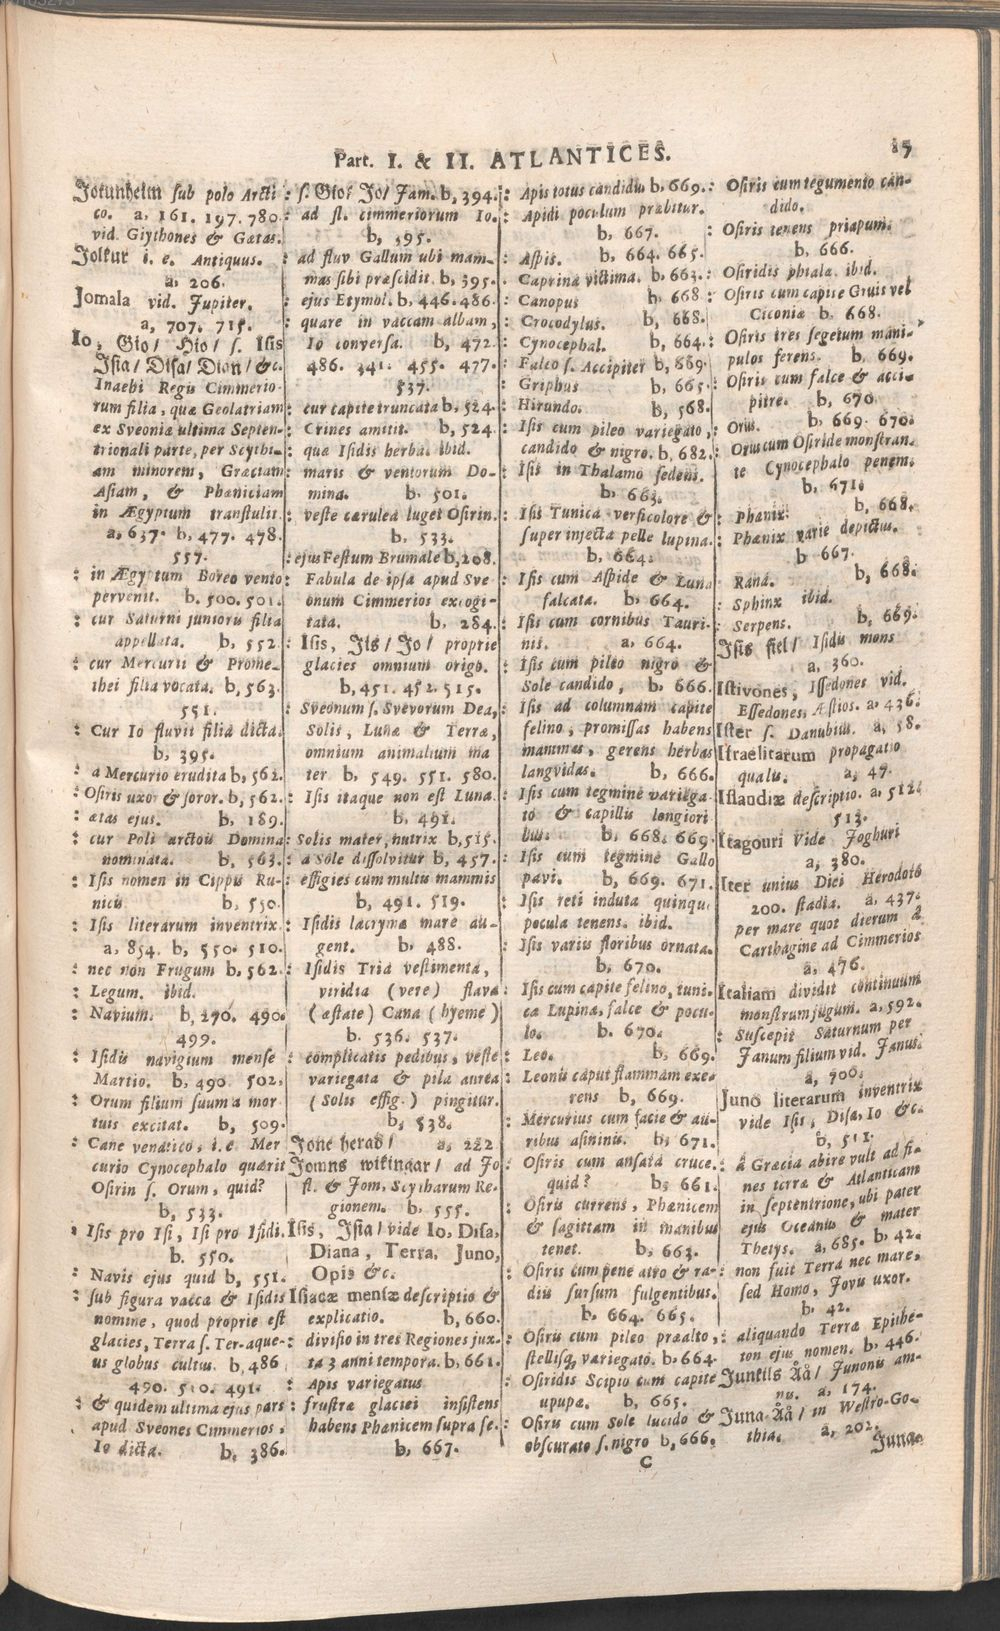 Part. I. & II. ATLANTICES.
Jotunheim ſub polo Arcti
co. a, 161. 197. 780.
vid. Giythones & Getas.
Jolkur i. e. Antiquus.
a, 206.
Jomala vid. Jupiter.
a, 707. 715.
Io, Gio/ Hio/ ſ. Iſis
Iſia/ Diſa/ Dian/ &c.
Inachi Regis Cimmerio-
rum filia, quæ Geolatriam
ex Sveonia ultima Septen-
trionali parte, per Scythi-
am minorem, Græciam
Aſiam, & Phæniciam
in Ægyptum tranſtulit.
a, 637. b, 477. 478.
557.
: in Ægyptum Boreo vento
pervenit. b. 500. 501.
: cur Saturni junioris filia
appellata. b, 552
: cur Mercurii & Prome-
thei filia vocata. b, 563.
551.
: Cur Io fluvii filia dicta.
b, 395.
: a Mercurio erudita b, 562.
: Oſiris uxor & ſoror. b, 562.
: ætas ejus. b, 189.
: cur Poli arctoii Domina
nominata. b, 563.
: Iſis nomen in Cippis Ru-
nicis b, 550.
: Iſis literarum inventrix.
a, 854. b, 550. 510.
: nec non Frugum b, 562.
: Legum. ibid.
: Navium. b, 270. 490.
499.
: Iſidis navigium menſe
Martio. b, 490. 502.
: Orum filium ſuum a mor
tuis excitat. b, 509.
: Cane venatico, i. e. Mer
curio Cynocephalo quærit
Oſirin ſ. Orum, quid?
b, 533.
: Iſis pro Iſi, Iſi pro Iſidi.
b. 550.
: Navis ejus quid b, 551.
: ſub figura vacca & Iſidis
nomine, quod proprie eſt
glacies, Terra ſ. Ter-aque-
us globus cultus. b, 486
490. 510. 491.
: & quidem ultima ejus pars
apud Sveones Cimmerios,
Io dicta. b. 386.
: ſ. Gio/ Jo/ Fam. b, 394.
: ad fl. cimmeriorum Io.
b, 395.
: ad fluv Gallum ubi mam-
mas ſibi præſcidit. b, 395.
: ejus Etymol. b, 446. 486.
: quare in vaccam albam,
Io converſa. b, 472.
486. 341. 455. 477.
537.
: cur capite truncata b, 524.
: Crines amitit. b, 524
: quæ Iſidis herba. ibid.
: maris & ventorum Do-
mina. b, 501.
: veſte cærulea luget Oſirin.
b, 533.
: ejus Feſtum Brumale b, 208.
: Fabula de ipſa apud Sve
onum Cimmerios excogi-
tata. b, 284.
: Iſis, Iis/ Jo/ proprie
glacies omnium origo.
b, 451. 452. 515.
: Sveonum ſ. Svevorum Dea,
Solis, Lunæ & Terræ,
omnium animalium ma
ter b, 549. 551. 580.
: Iſis itaque non eſt Luna.
b, 491.
: Solis mater, nutrix b, 515.
: a Sole diſſolvitur b, 457.
: effigies cum multis mammis
b, 491. 519.
: Iſidis lacryma mare au-
gent. b. 488.
: Iſidis Tria veſtimenta,
viridia (vere) flava
(æſtate) Cana (hyeme)
b. 536. 537.
: complicatis pedibus, veſte
variegata & pila aurea
(Solis effig.) pingitur.
b, 538.
Jone herad/ a, 222
Jomns wikingar/ ad Jo
fl. & Jom, Scytharum Re-
gionem. b, 555.
Iſis, Iſia/ vide Io, Diſa,
Diana, Terra, Juno,
Opis &c.
Iſiacæ menſæ deſcriptio &
explicatio. b, 660.
: diviſio in tres Regiones jux-
ta 3 anni tempora. b, 661.
: Apis variegatus
: fruſtra glaciei inſiſtens
habens Phænicem ſupra ſe.
b, 667.
: Apis totus candidus b, 669.
: Apidi poculum præbitur.
b, 667.
: Aſpis. b, 664. 665.
. Caprina victima. b, 663.
: Canopus b, 668
: Crocodylus. b, 668.
: Cynocephal. b, 664.
: Falco ſ. Accipiter b, 669.
: Griphus b, 665.
: Hirundo. b, 568.
: Iſis cum pileo variegato,
candido & nigro. b, 682.
: Iſis in Thalamo ſedens.
b, 663.
: Iſis Tunica verſicolore &
ſuper injecta pelle lupina.
b, 664.
: Iſis cum Aſpide & Luna
falcata. b, 664.
: Iſis cum cornibus Tauri-
nis. a, 664.
: Iſis cum pileo nigro &
Sole candido, b. 666.
: Iſis ad columnam capite
felino, promiſſas habens
mammas, gerens herbas
langvidas. b, 666.
: Iſis cum tegmine variega
to & capillis longiori
bus. b, 668. 669.
: Iſis cum tegmine Gallo
pavi. b, 669. 671.
: Iſis reti induta quinque
pocula tenens. ibid.
: Iſis variis floribus ornata.
b, 670.
: Iſis cum capite felino, tuni-
ca Lupina, falce & pocu-
lo. b. 670.
: Leo. b, 669.
: Leonis caput flammam exe-
rens b, 669.
: Mercurius cum facie & au-
ribus aſininis. b, 671.
: Oſiris cum anſata cruce.
quid? b, 661.
: Oſiris currens, Phænicem
& ſagittam in manibus
tenet. b, 663.
: Oſiris cum pene atro & ra-
diis ſurſum fulgentibus.
b. 664. 665.
: Oſiris cum pileo præalto,
ſtellisq; variegato. b, 664.
: Oſiridis Scipio cum capite
upupæ. b, 665.
: Oſiris cum Sole lucido &
obſcurato ſ. nigro b, 666.
C
15
: Oſiris cum tegumento can-
dido.
: Oſiris tenens priapum.
b, 666.
: Oſiridis phiala. ibid.
: Oſiris cum capite Gruis vel
Ciconiæ b. 668.
: Oſiris tres ſegetum mani-
pulos ferens. b, 669.
: Oſiris cum falce & acci-
pitre. b, 670
: Orus. b, 669. 670.
: Orus cum Oſiride monſtran-
te Cynocephalo penem.
b, 671.
: Phænix. b, 668.
: Phænix varie depictus.
b 667.
: Rana. b, 668.
: Sphinx ibid.
: Serpens. b, 669.
Iſis fiel/ Iſidis mons
a, 360.
Iſtivones, Iſſedones vid.
Eſſedones, Æſtios. a, 436.
Iſter ſ. Danubius. a, 58.
Iſraelitarum propagatio
qualis. a, 47.
Iſlandiæ deſcriptio. a, 512.
513.
Itagouri Vide Joghuri
a, 380.
Iter unius Diei Herodoto
200. ſtadia. a, 437.
per mare quot dierum à
Carthagine ad Cimmerios
a, 476.
Italiam dividit continuum
monſtrum jugum. a, 592.
: Suſcepit Saturnum per
Janum filium vid. Janus.
a, 700.
Juno literarum inventrix
vide Iſis, Diſa, Io &c.
b, 511.
: à Græcia abire vult ad fi-
nes terræ & Atlanticam
in ſeptentrione, ubi pater
ejus Oceanus & mater
Thetys. a, 685. b, 42.
: non fuit Terra nec mare,
ſed Homo, Jovis uxor.
b. 42.
: aliquando Terræ Epithe-
ton ejus nomen. b, 446.
Junkils Åå/ Junonis am-
nis. a, 174.
Juna-Åå/ in Weſtro-Go-
thia. a, 202.
Juna-